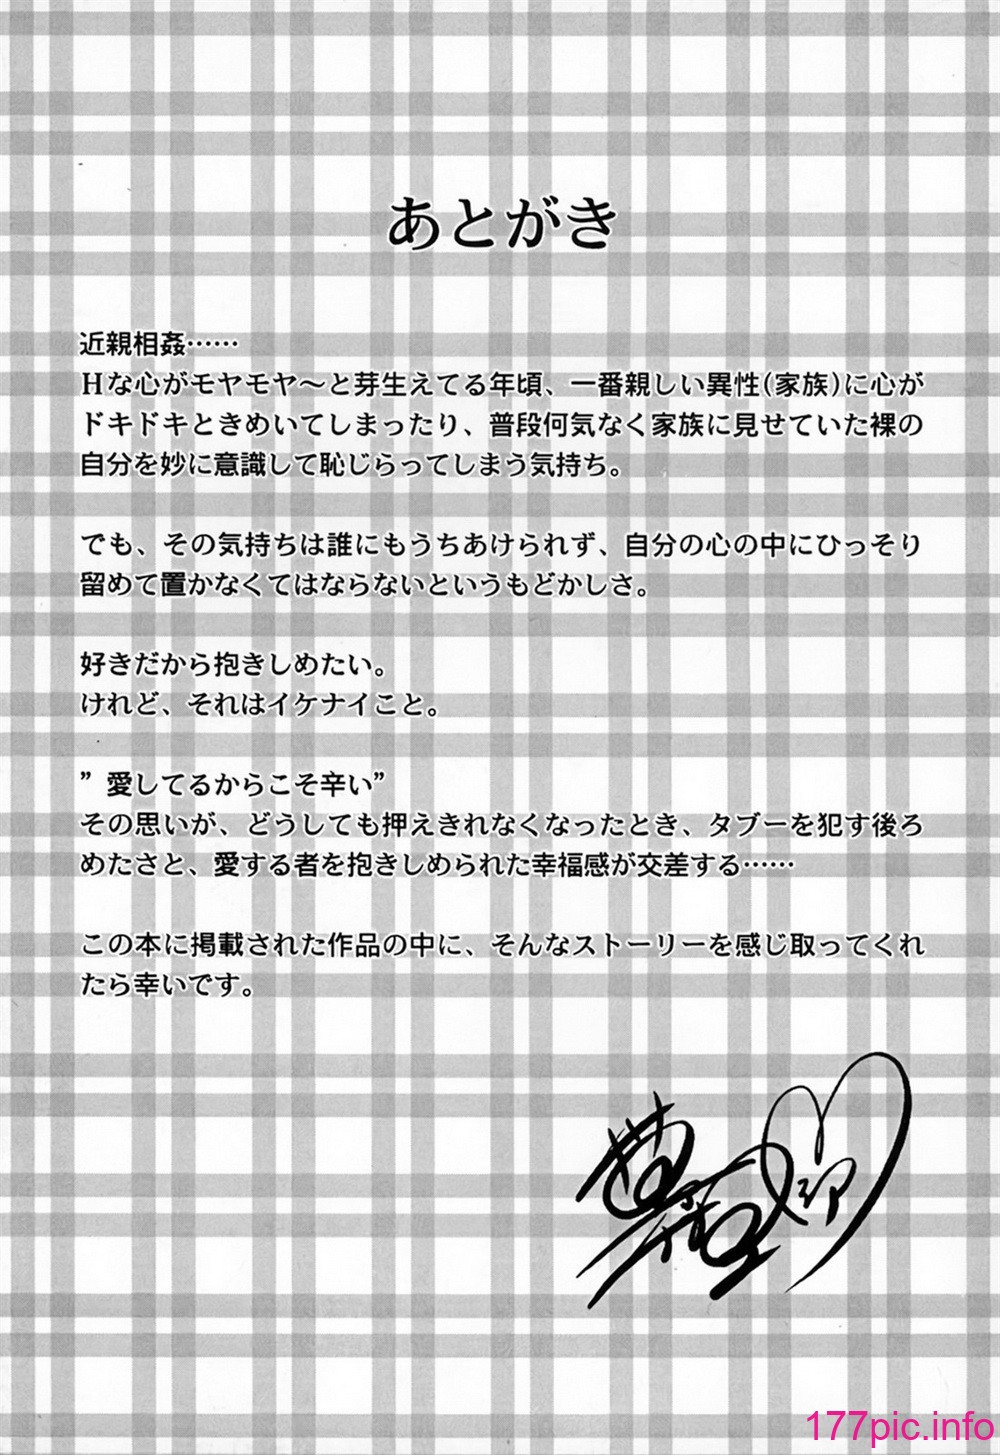 あとがき
近親相姦……
Ｈな心がモヤモヤ～と芽生えてる年頃、一番親しい異性(家族)に心が
ドキドキときめいてしまったり、普段何気なく家族に見せていた裸の
自分を妙に意識して恥じらってしまう気持ち。
でも、その気持ちは誰にもうちあけられず、自分の心の中にひっそり
留めて置かなくてはならないというもどかしさ。
好きだから抱きしめたい。
けれど、それはイケナイこと。
”愛してるからこそ辛い”
その思いが、どうしても押えきれなくなったとき、タブーを犯す後ろ
めたさと、愛する者を抱きしめられた幸福感が交差する……
この本に掲載された作品の中に、そんなストーリーを感じ取ってくれ
たら幸いです。
177pic.info